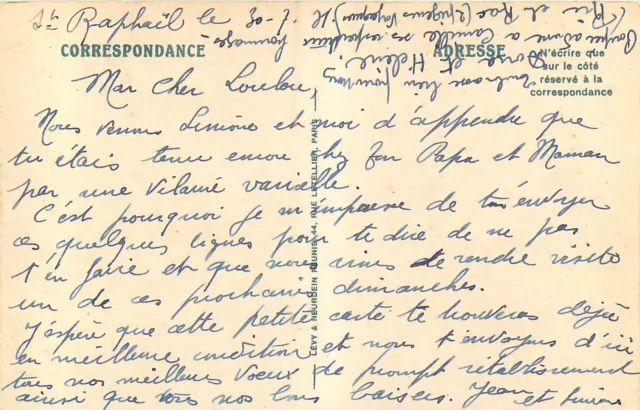 St Raphaël le 30-7.
CORRESPONDANCE
ADRESSE
N'écrire que
sur le côté
réservé à la
correspondance
Mon Cher Loulou,
Nous venons Simone et moi d'apprendre que
tu étais tenu encore chez ton Papa et Maman
par une vilaine varicelle.
C'est pourquoi je m'empresse de t'envoyer
ces quelques lignes pour te dire de ne pas
t'en faire et que nous irons te rendre visite
un de ces prochains dimanches.
J'espère que cette petite carte te trouvera déjà
en meilleure condition et nous t'envoyons d'ici
tous nos meilleurs voeux de prompt rétablissement
ainsi que nos bons baisers. Jean et Simone
Embrasse bien pour nous
et Hélène.
à Camille ses respectueux
hommages
et Rac
LÉVY & NEURDEIN RÉUNIS, 44, RUE LETELLIER, PARIS